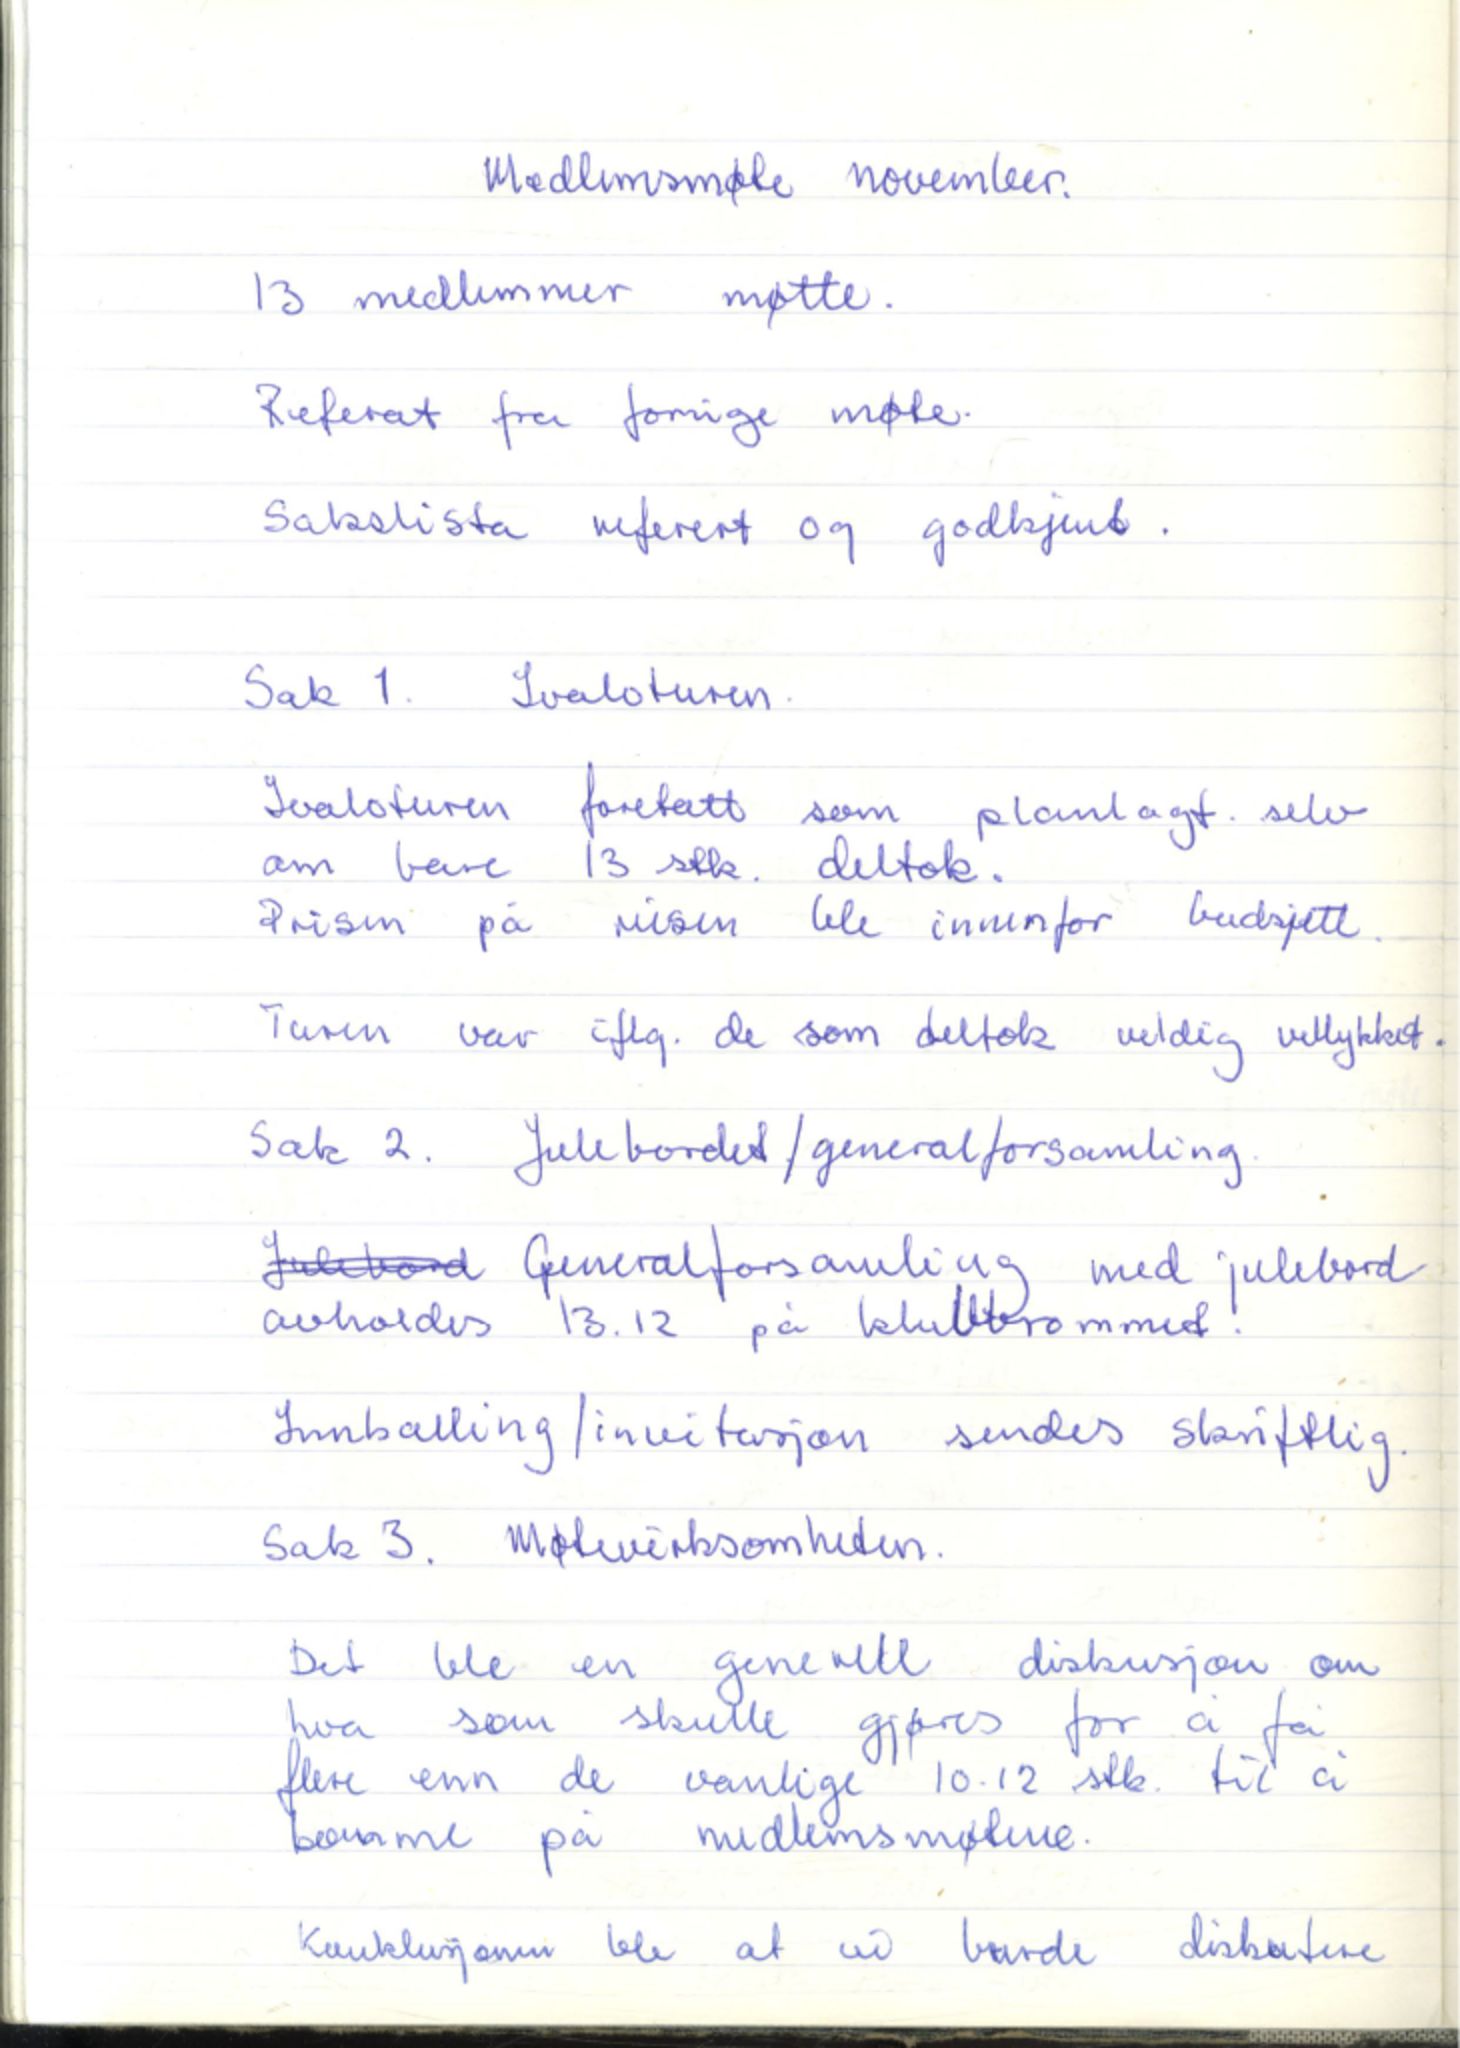 Medlemsmøte november.
13 medlemmer møtte.
Referat fra forrige møte.
Sakslista referert og godkjent.
Sak 1. Ivaloturen.
Ivaloturen foretatt som planlagt. selv
om bare 13 stk. deltok.
Prisen på reisen ble innenfor budsjett.
Turen var iflg. de som deltok veldig vellykket.
Sak 2. Julebordet/generalforsamling.
Julebord Generalforsamling med julebord
avholdes 13.12 på klubbrommet!
Innkalling/invitasjon sendes skriftlig.
Sak 3. Møtevirksomheten.
Det ble en generell diskusjon om
hva som skulle gjøres for å få
flere enn de vanlige 10-12 stk. til å
komme på medlemsmøtene.
Konklusjonen ble at vi burde diskutere